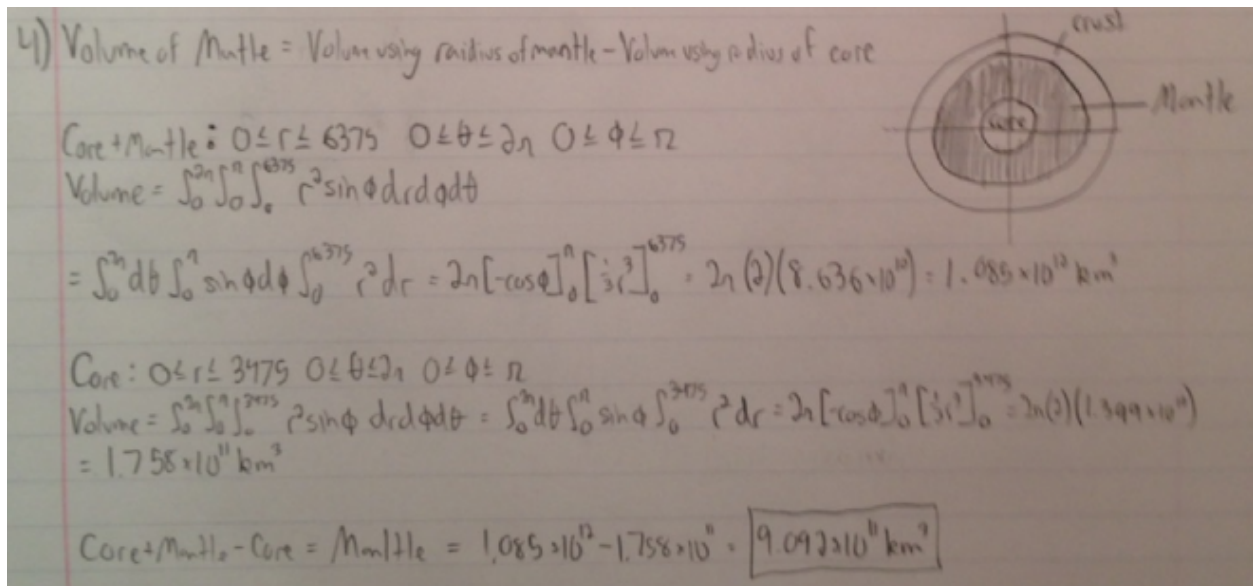 4) Volume of Mantle = Volume using raidius of mantle - Volum using radius of core
crust
Mantle
core
Core + Mantle : 0 ≤ r ≤ 6375 0 ≤ θ ≤ 2π 0 ≤ φ ≤ π
Volume = ∫₀^2π ∫₀^π ∫₀^6375 r² sinφ dr dφ dθ
= ∫₀^2π dθ ∫₀^π sinφ dφ ∫₀^6375 r² dr = 2π [-cosφ]₀^π [⅓r³]₀^6375 = 2π (2)(8.636×10¹⁰) = 1.085×10¹² km³
Core : 0 ≤ r ≤ 3475 0 ≤ θ ≤ 2π 0 ≤ φ ≤ π
Volume = ∫₀^2π ∫₀^π ∫₀^3475 r² sinφ dr dφ dθ = ∫₀^2π dθ ∫₀^π sinφ ∫₀^3475 r² dr = 2π [-cosφ]₀^π [⅓r³]₀^3475 = 2π(2)(1.399×10¹⁰)
= 1.758×10¹¹ km³
Core + Mantle - Core = Mantle = 1.085×10¹² - 1.758×10¹¹ = 9.092×10¹¹ km³